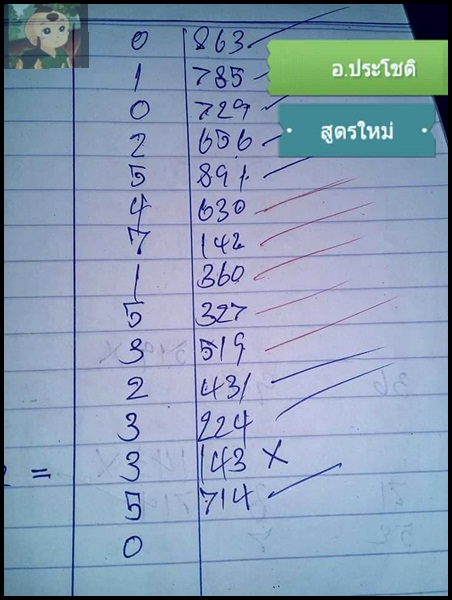 0 863
อ.ประโชติ
1 785
0 729
สูตรใหม่
2 656
5 891
4 630
7 142
1 360
5 327
3 519
2 431
3 224
= 3 143 X
5 714
0